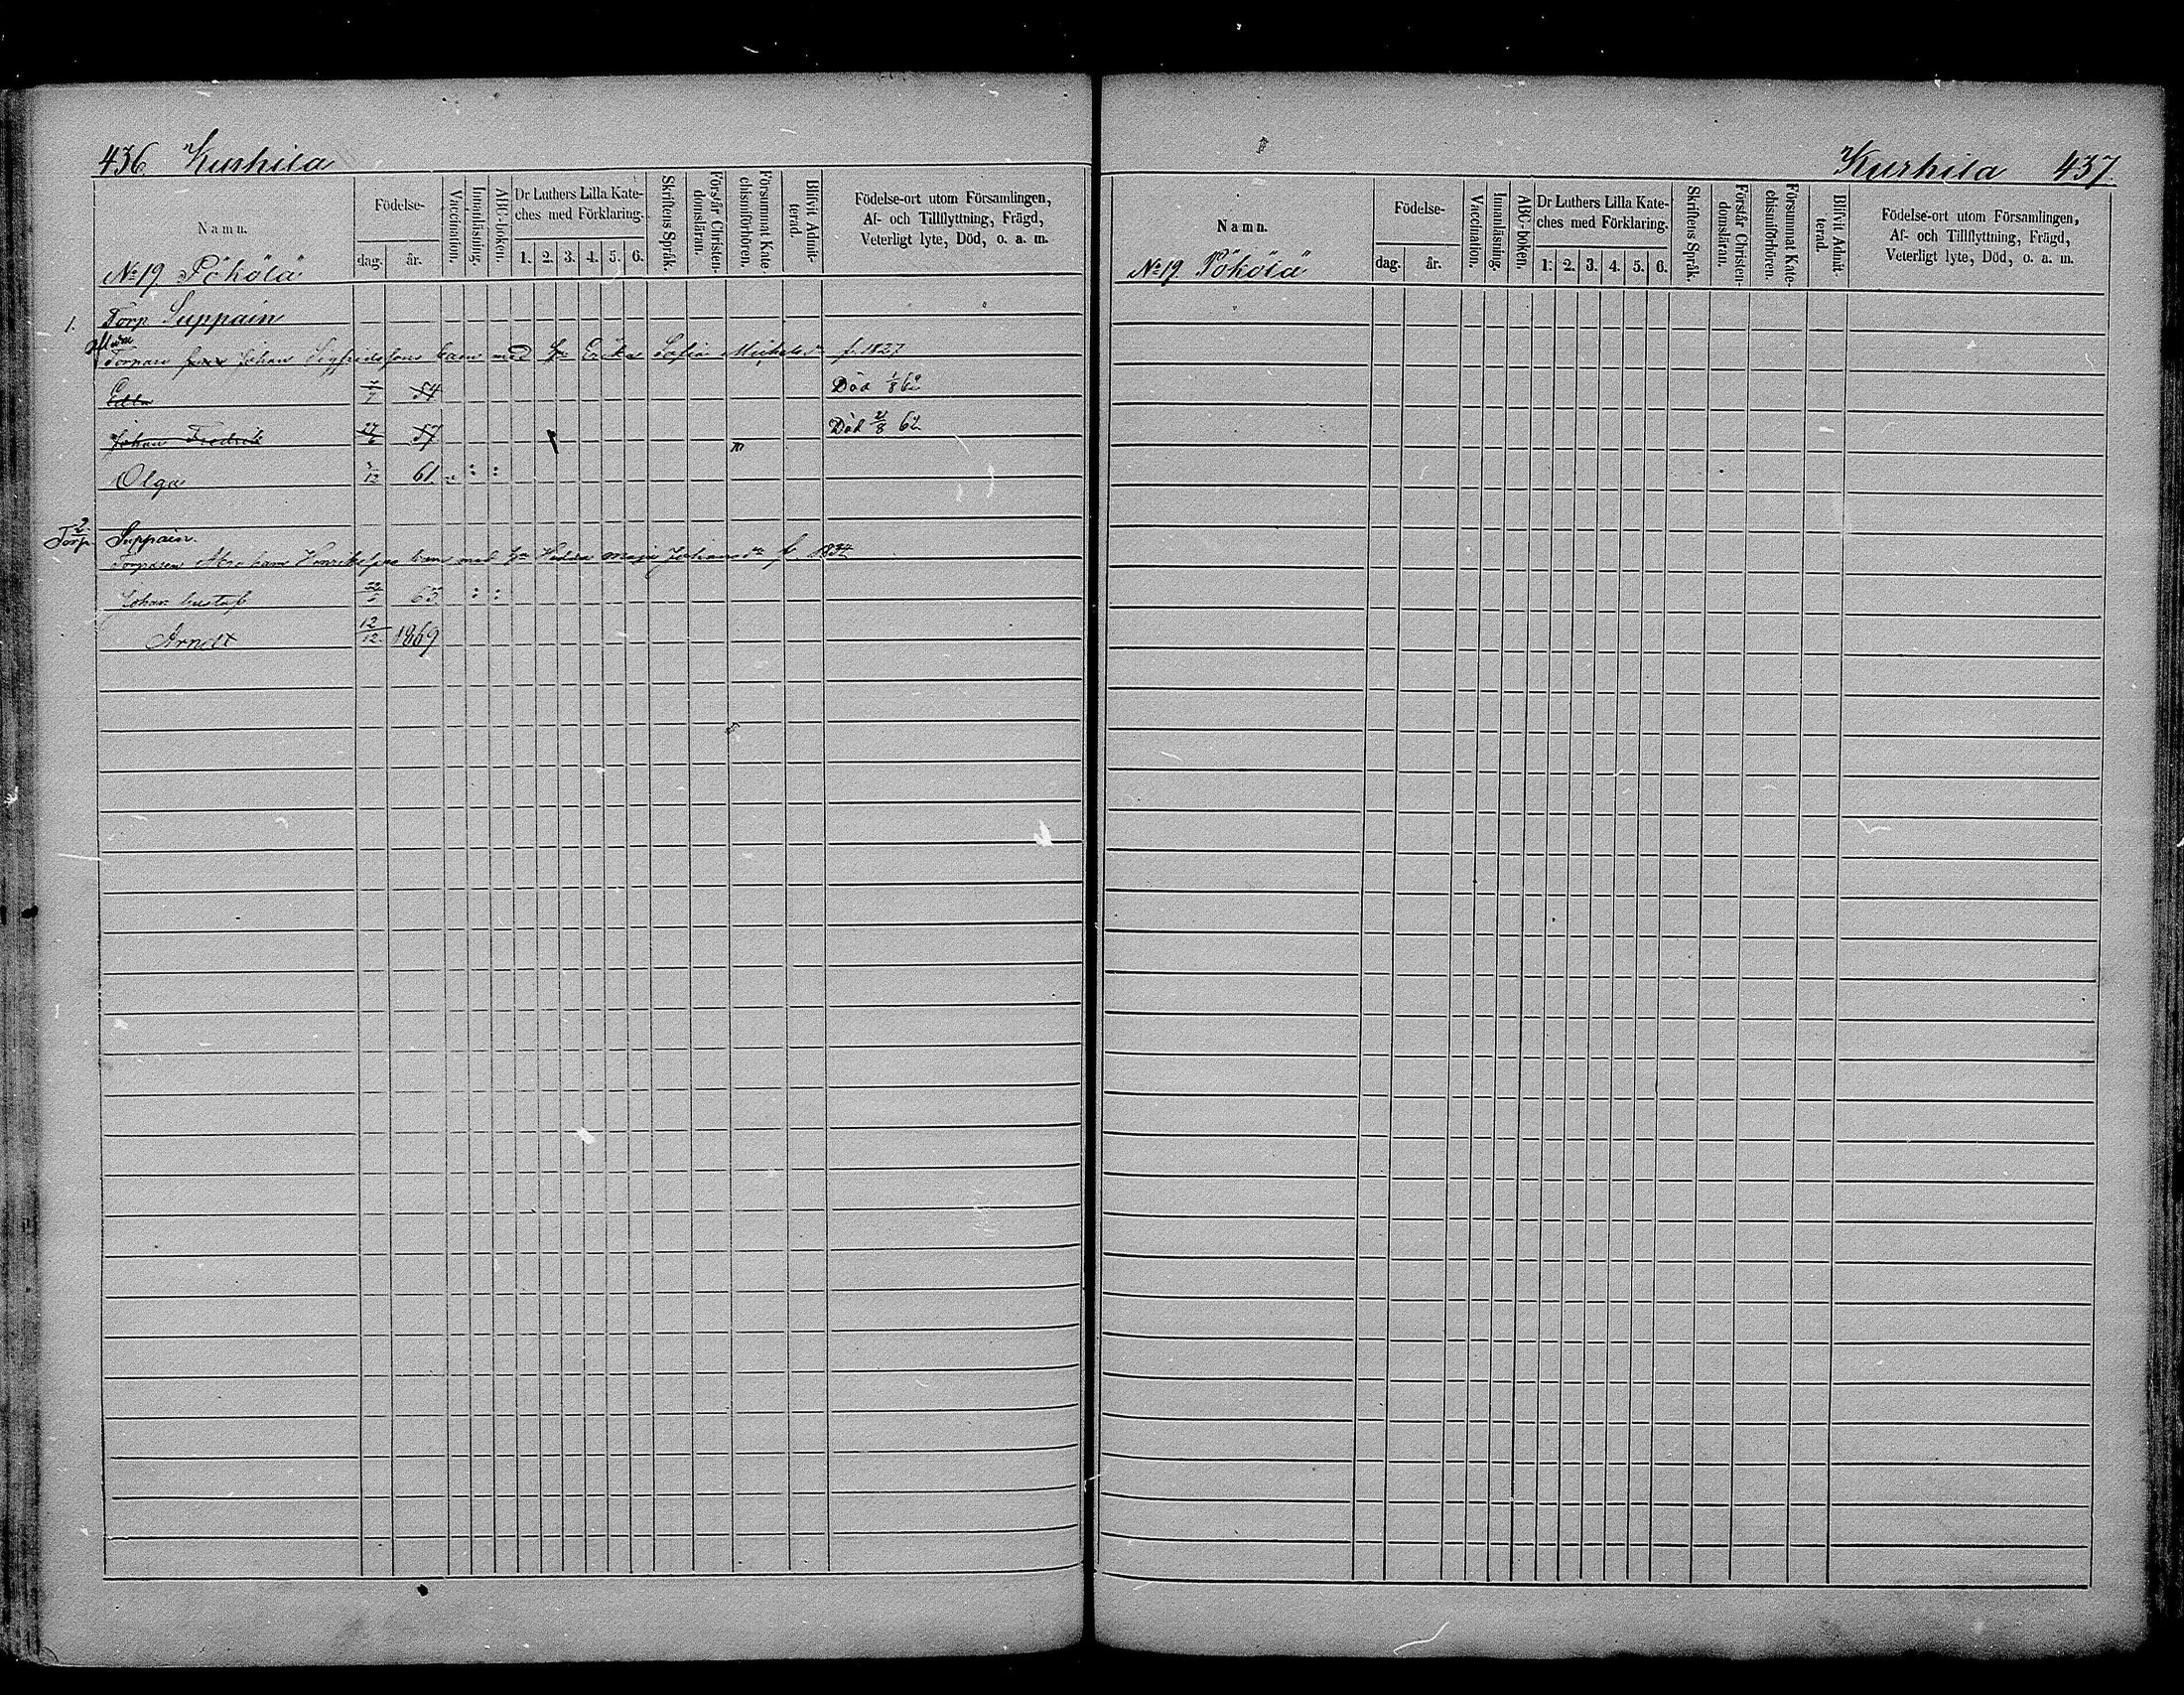 436 Kurhila
Namn.
Födelse-
dag. år.
Vaccination.
Innanläsning.
ABC-boken.
Dr Luthers Lilla Kate-
ches med Förklaring.
1. 2. 3. 4. 5. 6.
Skriftens Språk.
Förstår Christen-
domsläran.
Försummat Kate-
chismiförhören.
Blifvit Admit-
terad.
Födelse-ort utom Församlingen,
Af- och Tillflyttning, Frägd,
Veterligt lyte, Död, o. a. m.
No 19 Pöhölä
1. Torp Suppain
Johan Sigfridssons barn med Erika Sofia Michelsdr f. 1827
Edla 54 Död 1/8 62
Johan Fredrik 27/6 57 Död 21/8 62
Olga 61 : :
2
Torp Suppain.
Torparen Abraham Henrikssons barn med Hu Hedda Maja Johansdr f. 1834
Johan Gustaf 63 : :
Arndt 12/12 1869
Kurhila 437.
Namn.
Födelse-
dag. år.
Vaccination.
Innanläsning.
ABC-boken.
Dr Luthers Lilla Kate-
ches med Förklaring.
1. 2. 3. 4. 5. 6.
Skriftens Språk.
Förstår Christen-
domsläran.
Försummat Kate-
chismiförhören.
Blifvit Admit-
terad.
Födelse-ort utom Församlingen,
Af- och Tillflyttning, Frägd,
Veterligt lyte, Död, o. a. m.
No 19 Pöhölä